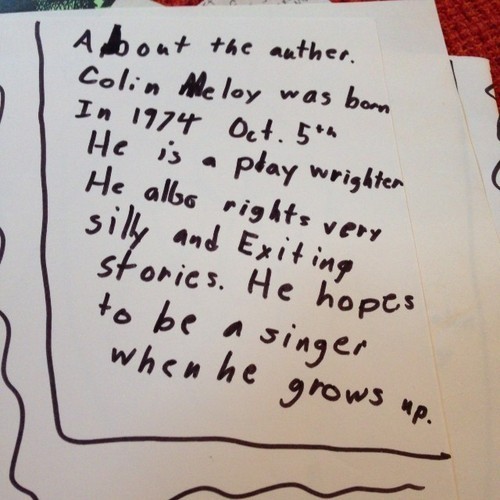 About the auther.
Colin Meloy was born
In 1974 Oct. 5th
He is a play wrighter
He albo rights very
silly and Exiting
stories. He hopes
to be a singer
when he grows up.